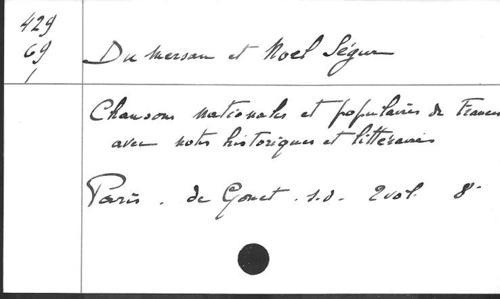 429
69
1
Du Mersan et Noël Ségur
Chansons nationales et populaires de France
avec notes historiques et littéraires
Paris. de Gonet. s.d. 2 vol. 8°